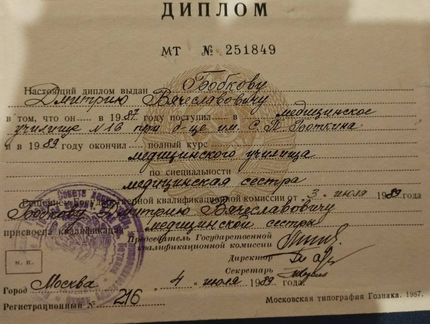 ДИПЛОМ
МТ № 251849
Настоящий диплом выдан Бобкову
Дмитрию Вячеславовичу
в том, что он в 1987 году поступил в медицинское
училище №16 при б-це им. С.П. Боткина
и в 1989 году окончил полный курс
медицинского училища
по специальности
медицинская сестра
Решением Государственной квалификационной комиссии от 3 июля 1989 года
Бобкову Дмитрию Вячеславовичу
присвоена квалификация медицинской сестры
Председатель Государственной
квалификационной комиссии
Директор
Секретарь
М. П.
Город Москва 4 июля 1989 года
Регистрационный № 216
Московская типография Гознака. 1987.